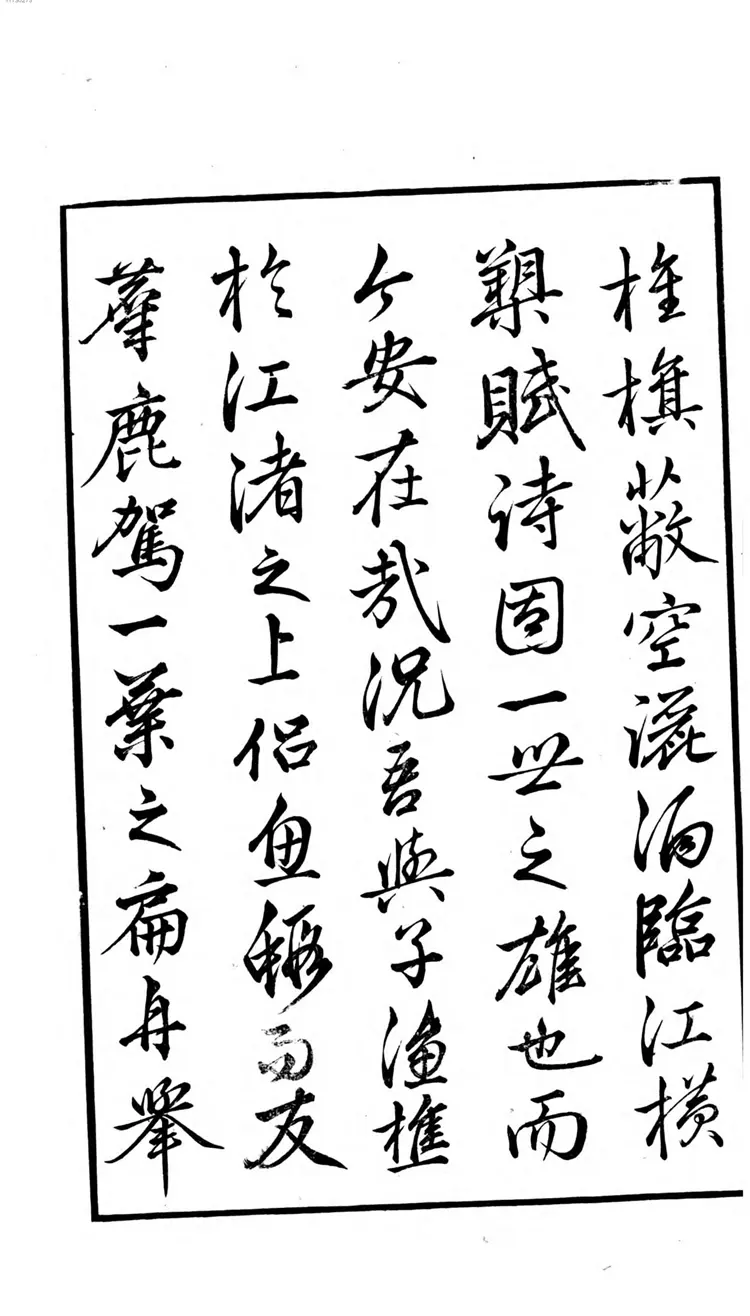 旌旗蔽空灑酒臨江橫
槊賦詩固一世之雄也而
今安在哉況吾與子漁樵
於江渚之上侶魚蝦而友
麋鹿駕一葉之扁舟舉